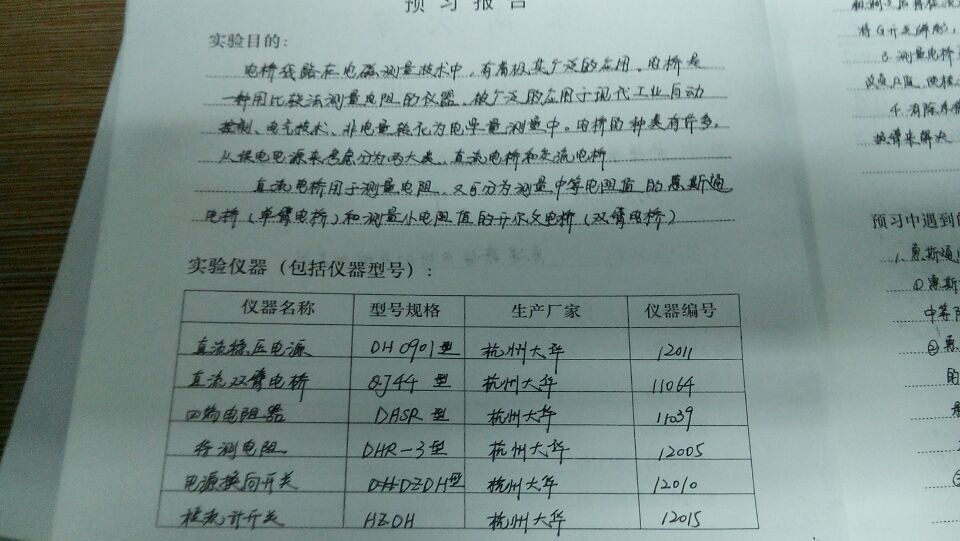 预习报告
实验目的：
电桥线路在电磁测量技术中，有着极其广泛的应用。电桥是
一种用比较法测量电阻的仪器、被广泛的应用于现代工业自动
控制、电气技术、非电量转化为电学量测量中。电桥的种类有许多，
从供电电源来考虑分为两大类、直流电桥和交流电桥
直流电桥用于测量电阻、又分为测量中等电阻值的惠斯通
电桥（单臂电桥）和测量小电阻值的开尔文电桥（双臂电桥）
实验仪器（包括仪器型号）：
仪器名称 型号规格 生产厂家 仪器编号
直流稳压电源 DH0901型 杭州大华 12011
直流双臂电桥 QJ44型 杭州大华 11064
四端电阻器 DHSR型 杭州大华 11039
待测电阻 DHR-3型 杭州大华 12005
电源换向开关 DHDZDH型 杭州大华 12010
检流计开关 HZDH 杭州大华 12015
将G开关
3. 测量电桥
4. 消除
换臂来解决
预习中遇到的
1. 惠斯通
①惠斯
中等
②惠
的